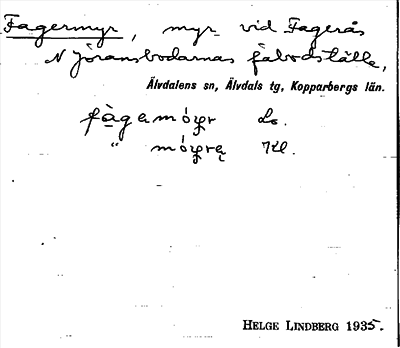 Fagermyr, myr vid Fagerås
N Jöransbodarnas fäbodställe,
Älvdalens sn, Älvdals tg, Kopparbergs län.
fàgamóyr Ls.
" móyrą Kl.
HELGE LINDBERG 1935.